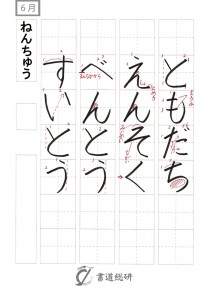 6月
ねんちゅう
ともだち
えんそく
べんとう
すいとう
書道総研